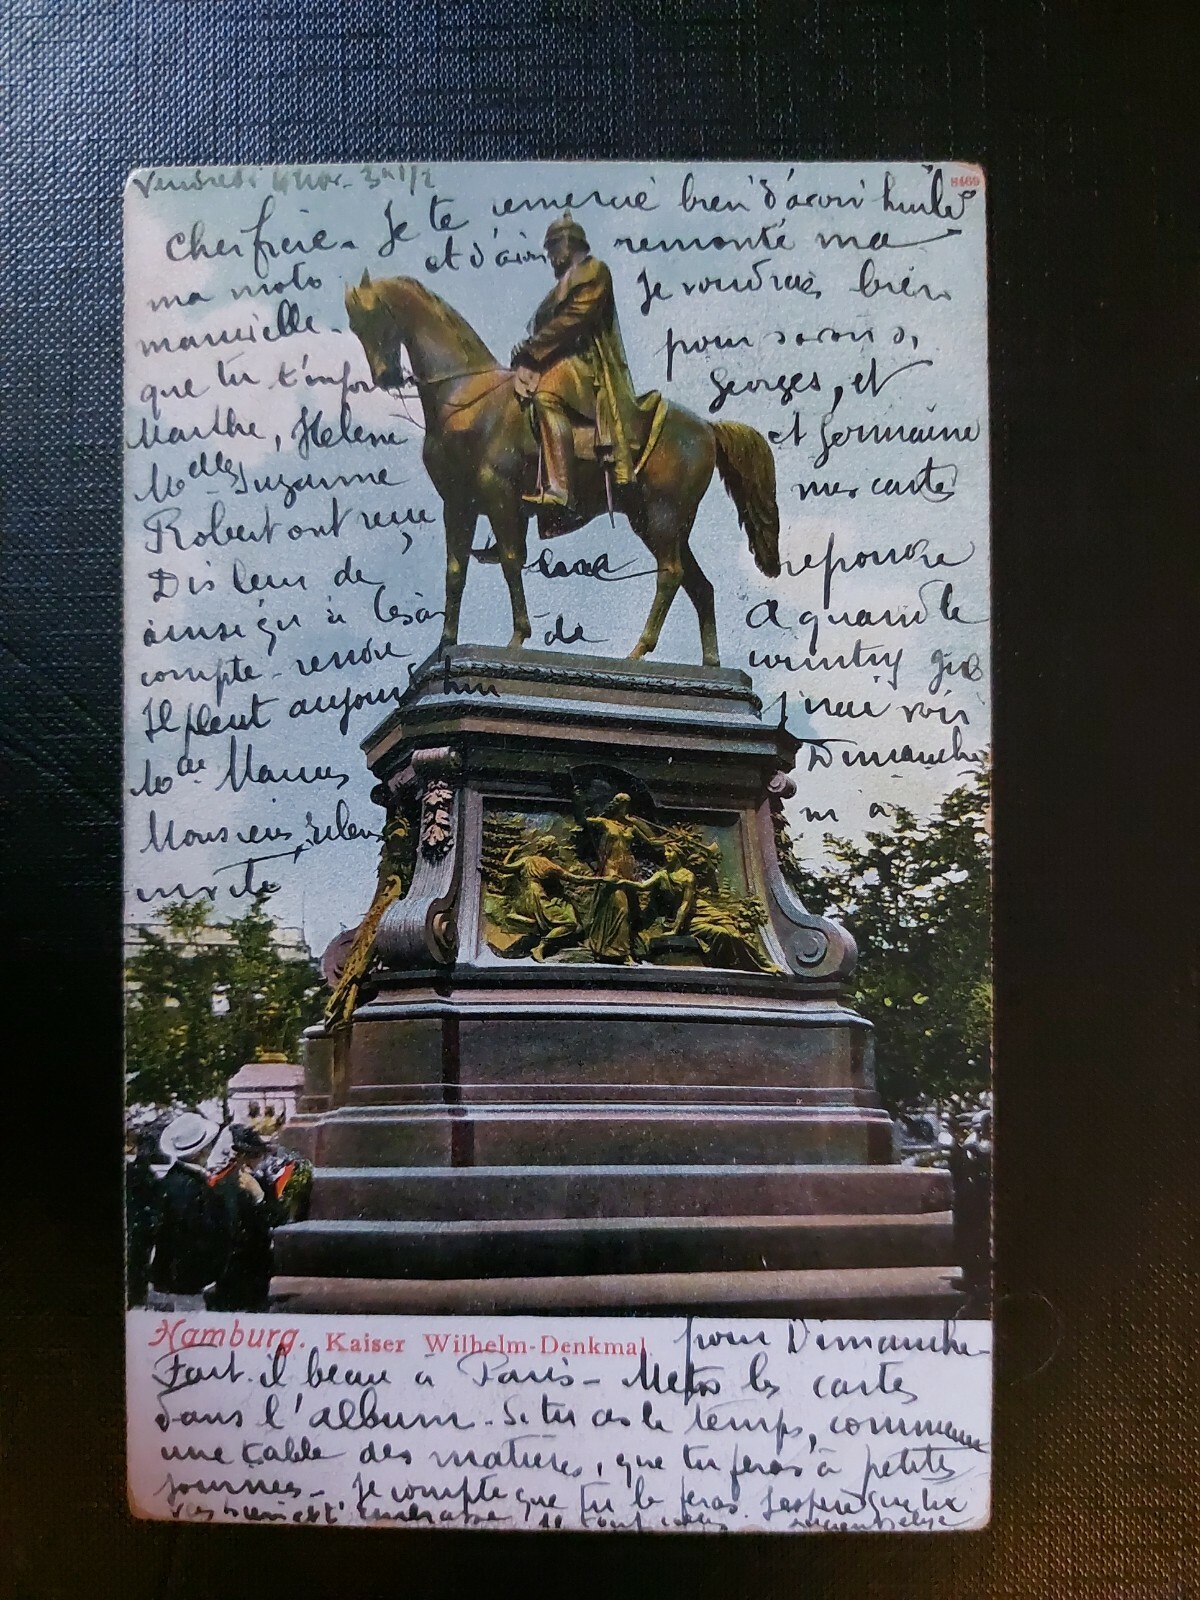 Vendredi 4 Nov. 3h 1/2
8469
Cher frère. Je te remercie bien d'avoir huilé
ma moto et d'avoir remonté ma
manivelle. Je voudrais bien
que tu t'informes pour savoir si
Marthe, Helene Georges, et
Melles Suzanne et Germaine
Robert ont reçu mes cartes
Dis leur de répondre
ainsi qu'à A quand le
compte-rendu de
Il pleut aujourd'hui j'irai voir
Mme Dimanche
Monsieur m'a
invité
Hamburg. Kaiser Wilhelm-Denkmal.
pour Dimanche-
Fait-il beau à Paris- Mets les cartes
dans l'album. Si tu as le temps, commence
une table des matières, que tu feras à petites
journées- Je compte que tu le feras. J'espère que tu
vas bien et t'embrasse de tout cœur